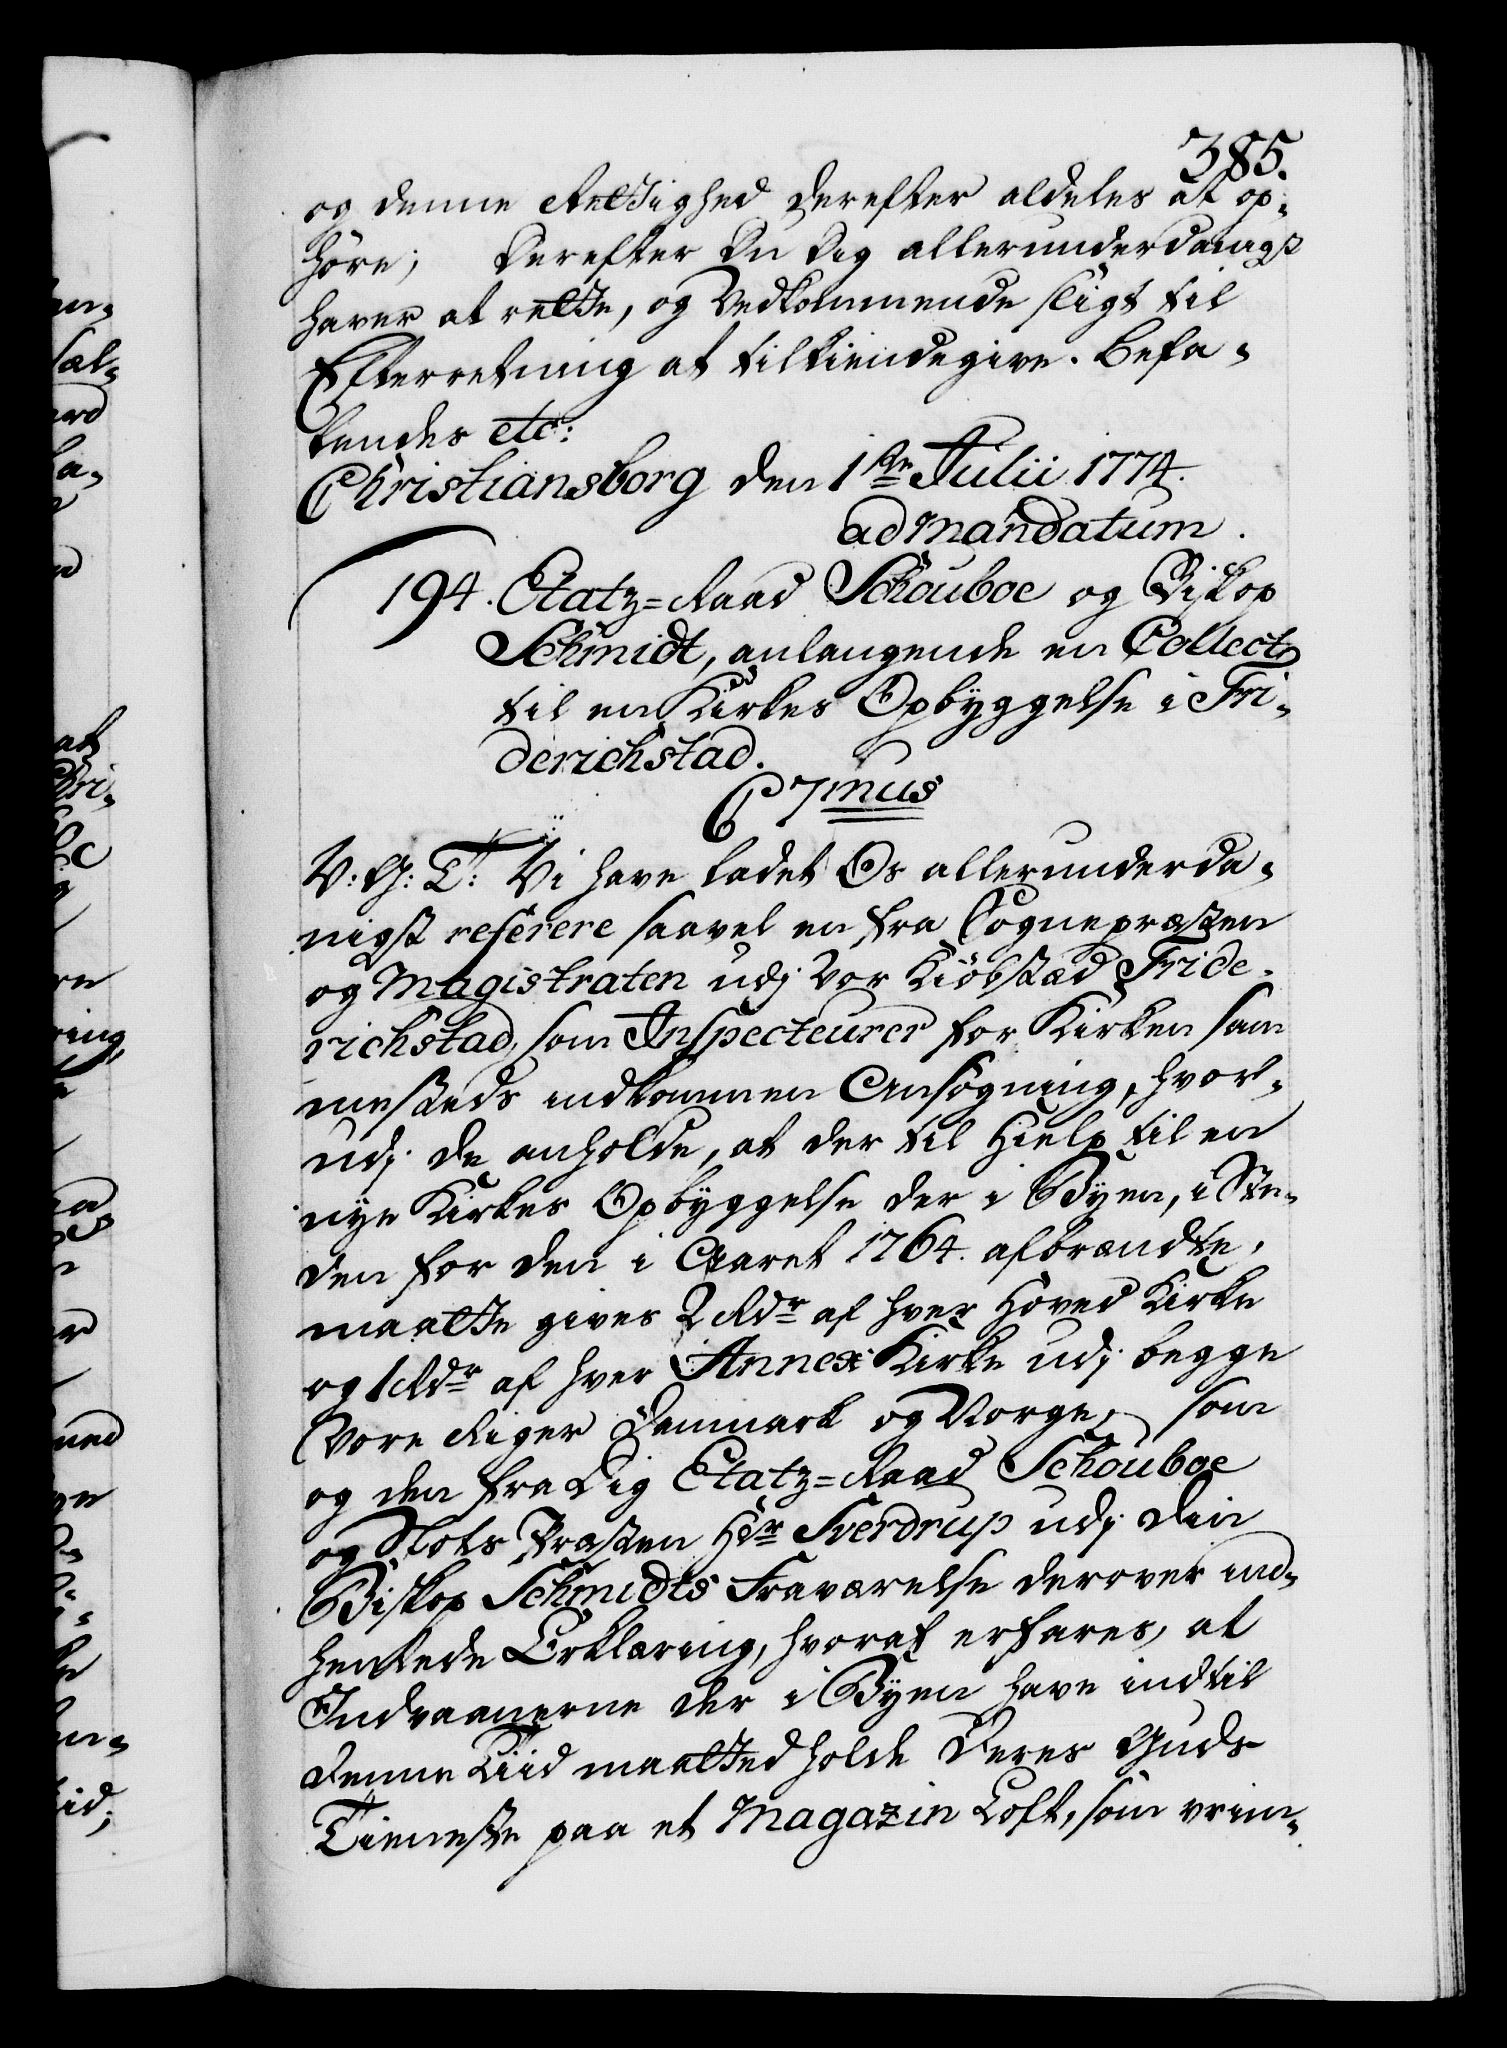 385.
og denne Rettighed derefter aldeles at op-
høre; Derefter Du Dig allerunderdanigst
haver at rette, og Vedkommende sligt til
Efterretning at tilkiendegive. Befa-
lendes etc:
Christiansborg den 1ste Julii 1774.
ad Mandatum.
194. Etatz-Raad Schouboe og Biskop
Schmidt, anlangende en Collect
til en Kirkes Opbyggelse i Fri-
derichstad.
C 7mus
V: G: T: Vi have ladet Os allerunderda-
nigst referere saavel en fra Sognepræsten
og Magistraten udj Vor Kiöbstæd Fride-
richstad, som Inspecteurer for Kirken sam
mesteds indkommen Ansøgning, hvor-
udj de anholde, at der til Hielp til en
nye Kirkes Opbyggelse der i Byen, i Ste-
den for den i Aaret 1764. afbrændte,
maatte gives 2 Rdr af hver Hoved Kirke
og 1 Rdr af hver Annex Kirke udj begge
Vore Riger Danmark og Norge, som
og den fra Dig Etatz-Raad Schouboe
og Slots Præsten Hr Sverdrup udj din
Biskop Schmidts Fraværelse derover ind-
hentede Erklæring, hvoraf erfares, at
Indvaanerne der i Byen have indtil
denne Tiid maatted holde deres Guds
Tieneste paa et Magazin Loft, som vrim-